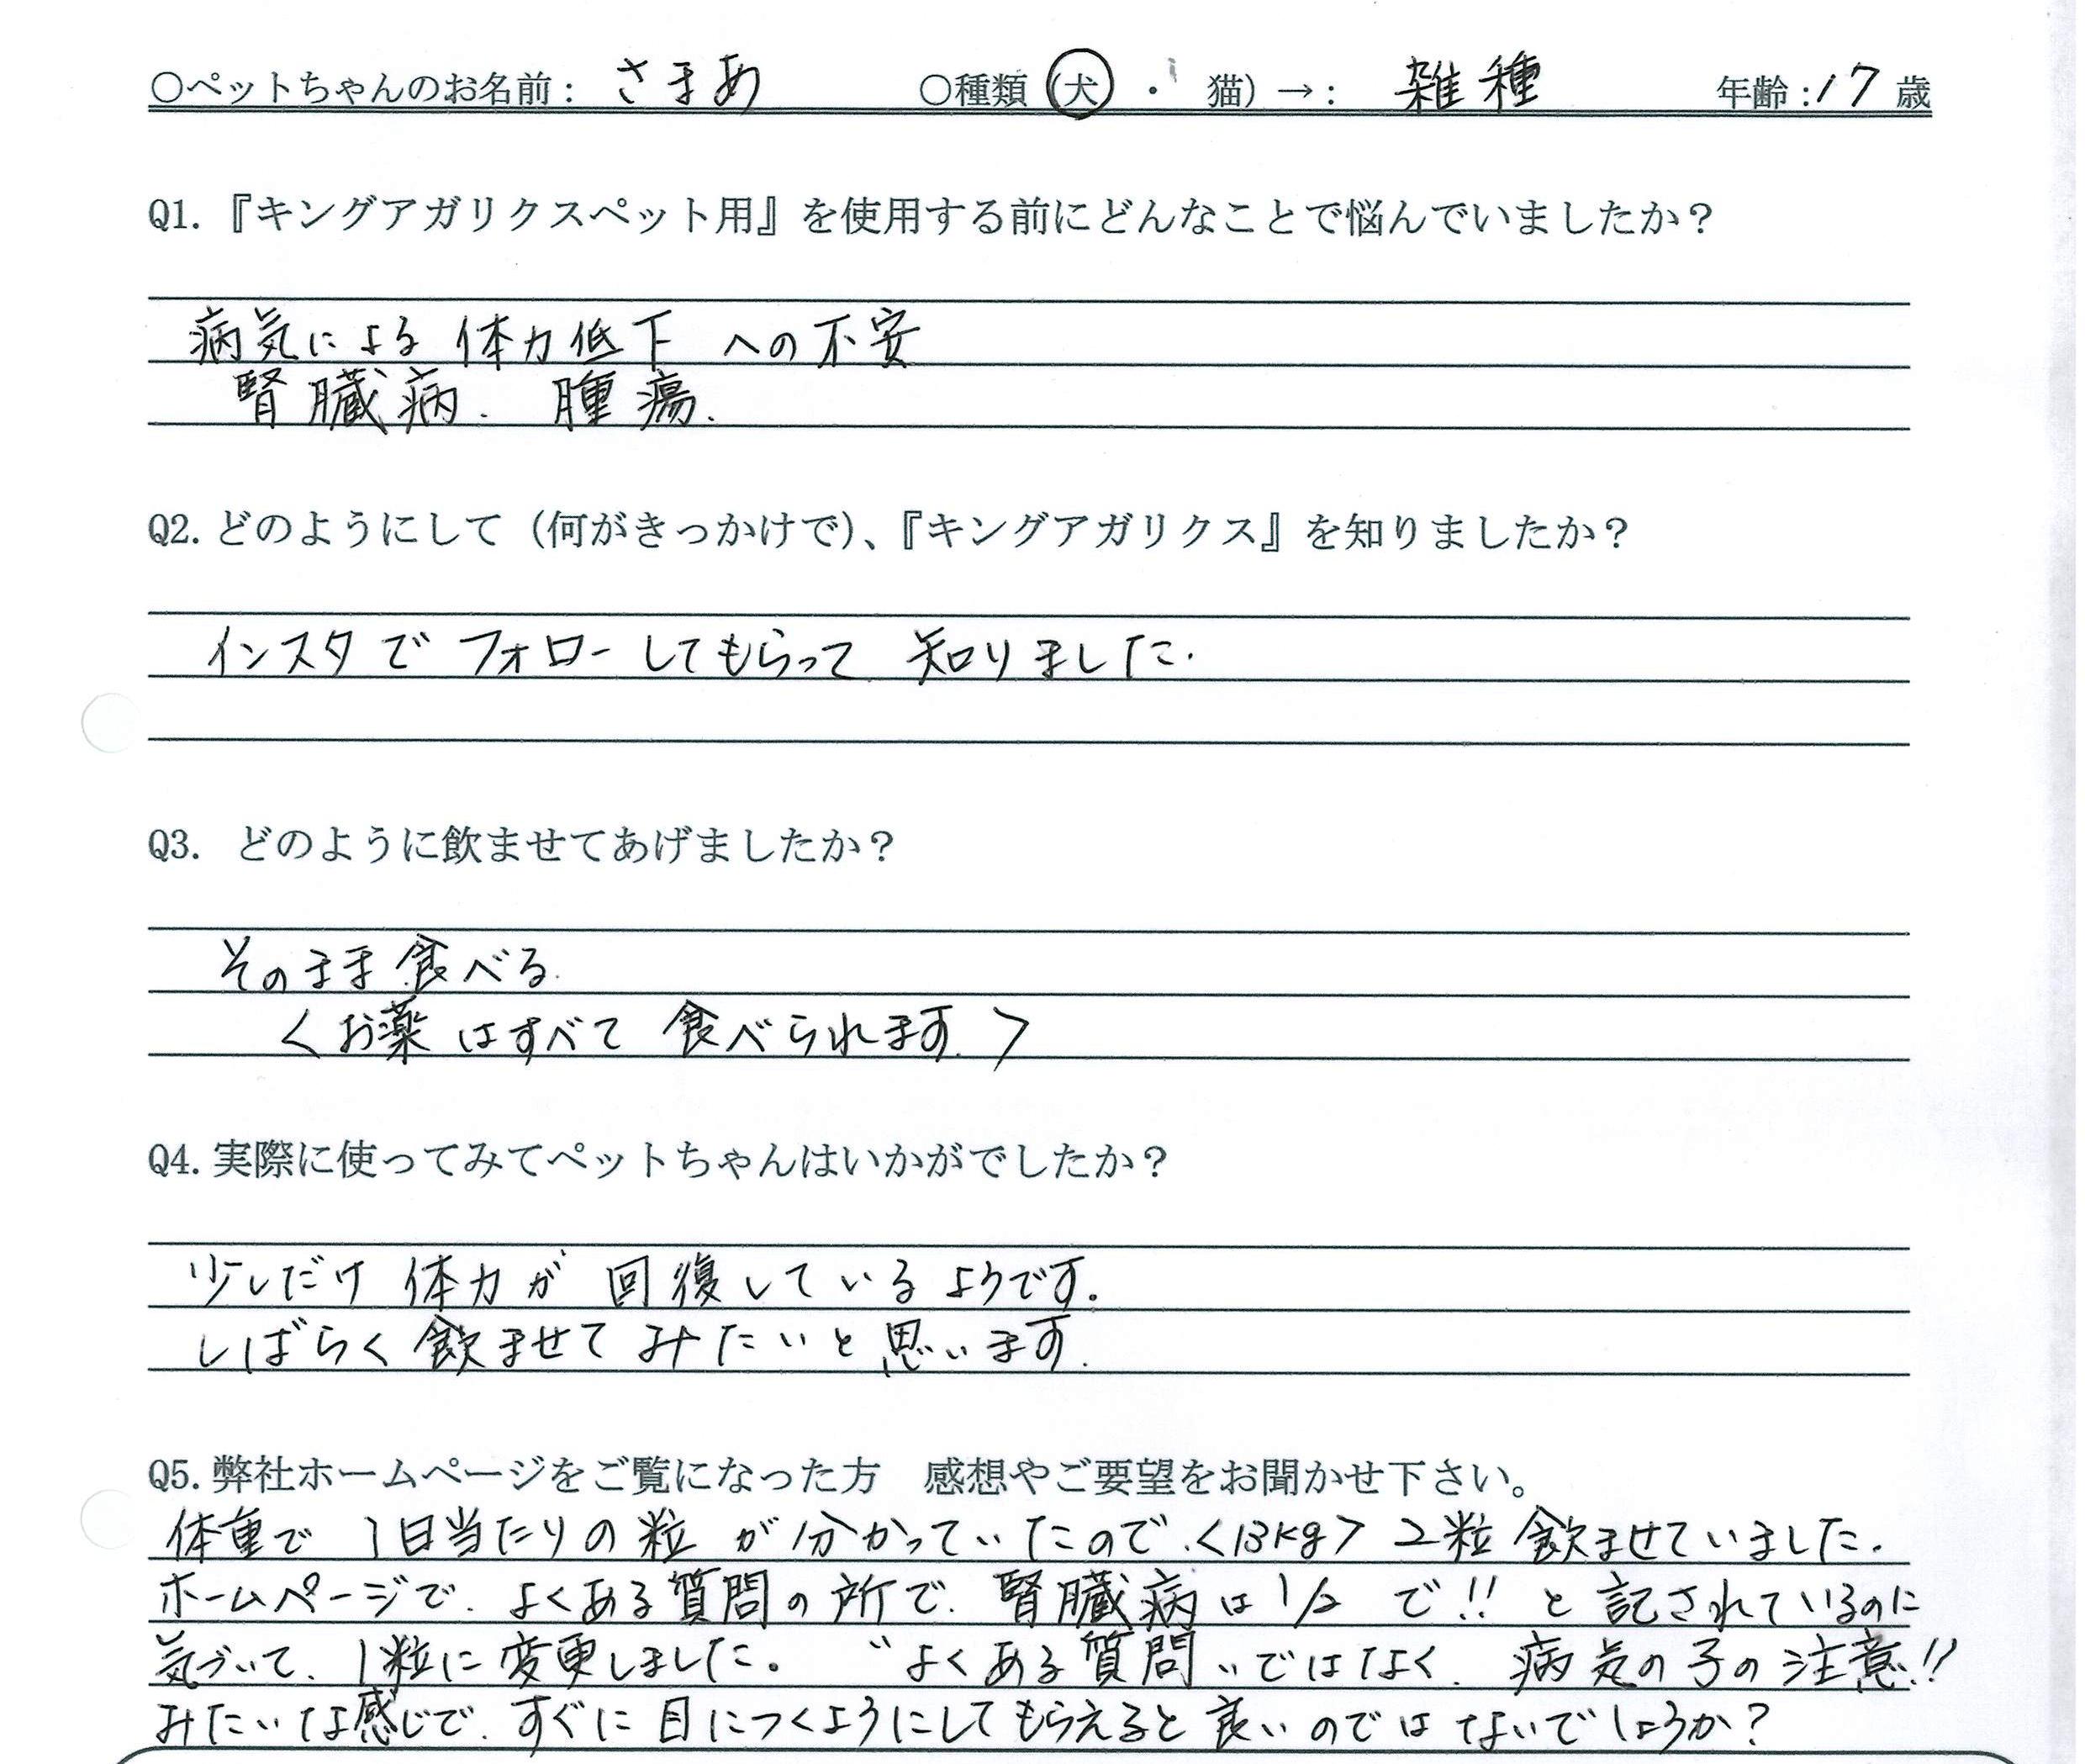 ○ペットちゃんのお名前：さまあ　○種類（犬・猫）→：雑種　年齢：17歳
Q1.『キングアガリクスペット用』を使用する前にどんなことで悩んでいましたか？
病気による体力低下への不安
腎臓病.腫瘍.
Q2.どのようにして（何がきっかけで）、『キングアガリクス』を知りましたか？
インスタでフォローしてもらって知りました.
Q3. どのように飲ませてあげましたか？
そのまま食べる.
＜お薬はすべて食べられます.＞
Q4.実際に使ってみてペットちゃんはいかがでしたか？
少しだけ体力が回復しているようです.
しばらく飲ませてみたいと思います.
Q5.弊社ホームページをご覧になった方　感想やご要望をお聞かせ下さい。
体重で1日当たりの粒が分かっていたので.＜13kg＞2粒飲ませていました.
ホームページで.よくある質問の所で.腎臓病は1/2で!!と記されているのに
気づいて.1粒に変更しました。〝よくある質問〟ではなく.病気の子の注意!!
みたいな感じで.すぐに目につくようにしてもらえると良いのではないでしょうか?